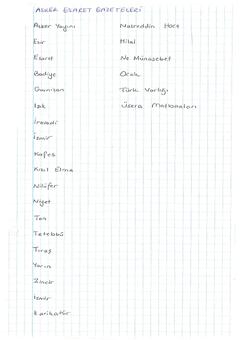 ASKER ESARET GAZETELERİ
Asker Yayını
Esir
Esaret
Badiye
Garnizon
Işık
Iravadi
İzmir
Kafes
Kızıl Elma
Nilüfer
Niyet
Tan
Tetebbü
Tıraş
Yarın
Zincir
İzmir
Karikatür
Nasreddin Hoca
Hilal
Ne Münasebet
Ocak
Türk Varlığı
Üsera Matbaaları